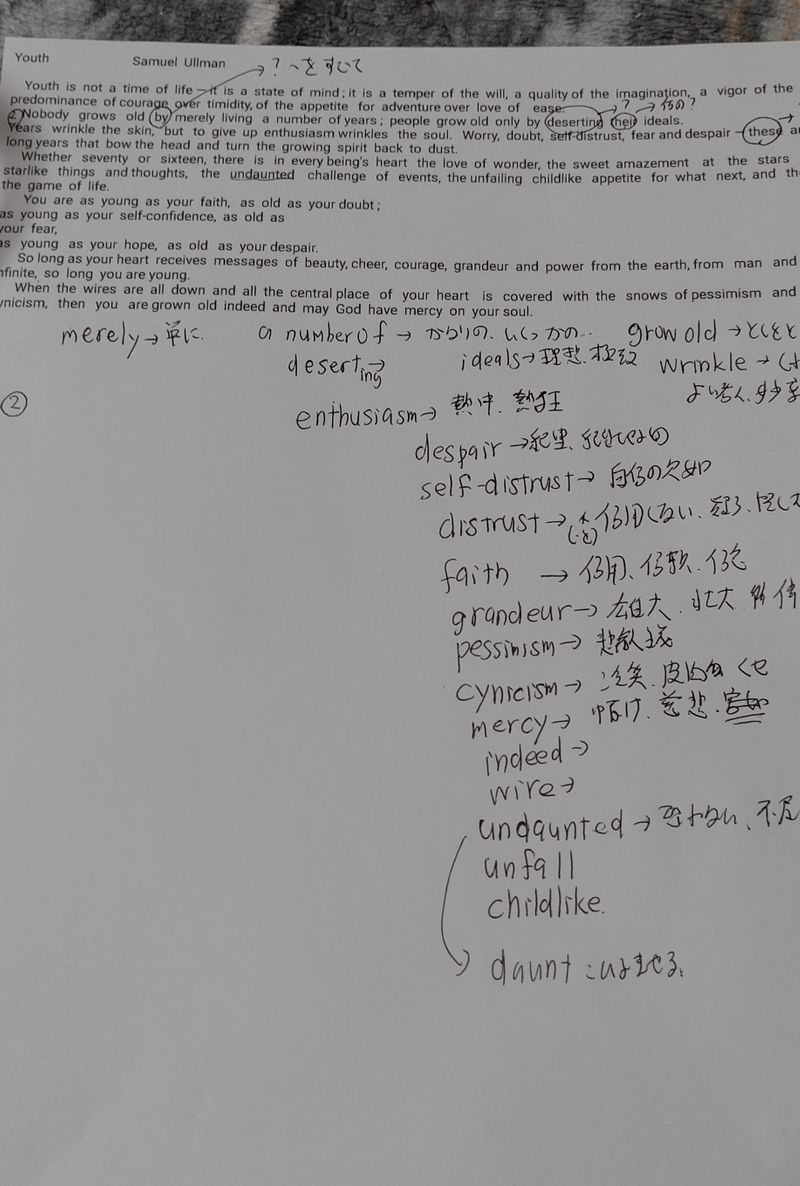 Youth Samuel Ullman → ? ～をすてて
Youth is not a time of life - it is a state of mind; it is a temper of the will, a quality of the imagination, a vigor of the
predominance of courage over timidity, of the appetite for adventure over love of ease. → ? → 何の?
② Nobody grows old by merely living a number of years; people grow old only by deserting their ideals.
Years wrinkle the skin, but to give up enthusiasm wrinkles the soul. Worry, doubt, self-distrust, fear and despair - these
long years that bow the head and turn the growing spirit back to dust.
Whether seventy or sixteen, there is in every being's heart the love of wonder, the sweet amazement at the stars
starlike things and thoughts, the undaunted challenge of events, the unfailing childlike appetite for what next, and
the game of life.
You are as young as your faith, as old as your doubt;
as young as your self-confidence, as old as
your fear,
as young as your hope, as old as your despair.
So long as your heart receives messages of beauty, cheer, courage, grandeur and power from the earth, from man and
nfinite, so long you are young.
When the wires are all down and all the central place of your heart is covered with the snows of pessimism and
ynicism, then you are grown old indeed and may God have mercy on your soul.
merely → 単に a number of → かなりの、いくつかの… grow old → としをと
deserting → ideals → 理想、 wrinkle →
②
enthusiasm → 熱中、熱狂
despair → 絶望、
self-distrust → 自信の欠如
distrust → 信用しない、疑う、
faith → 信用、信頼、信念
grandeur → 雄大、壮大、
pessimism → 悲観主義
cynicism → 冷笑、皮肉なくせ
mercy → 情け、慈悲、
indeed →
wire →
undaunted → 恐れない、不屈
unfall
childlike.
daunt こわませる、